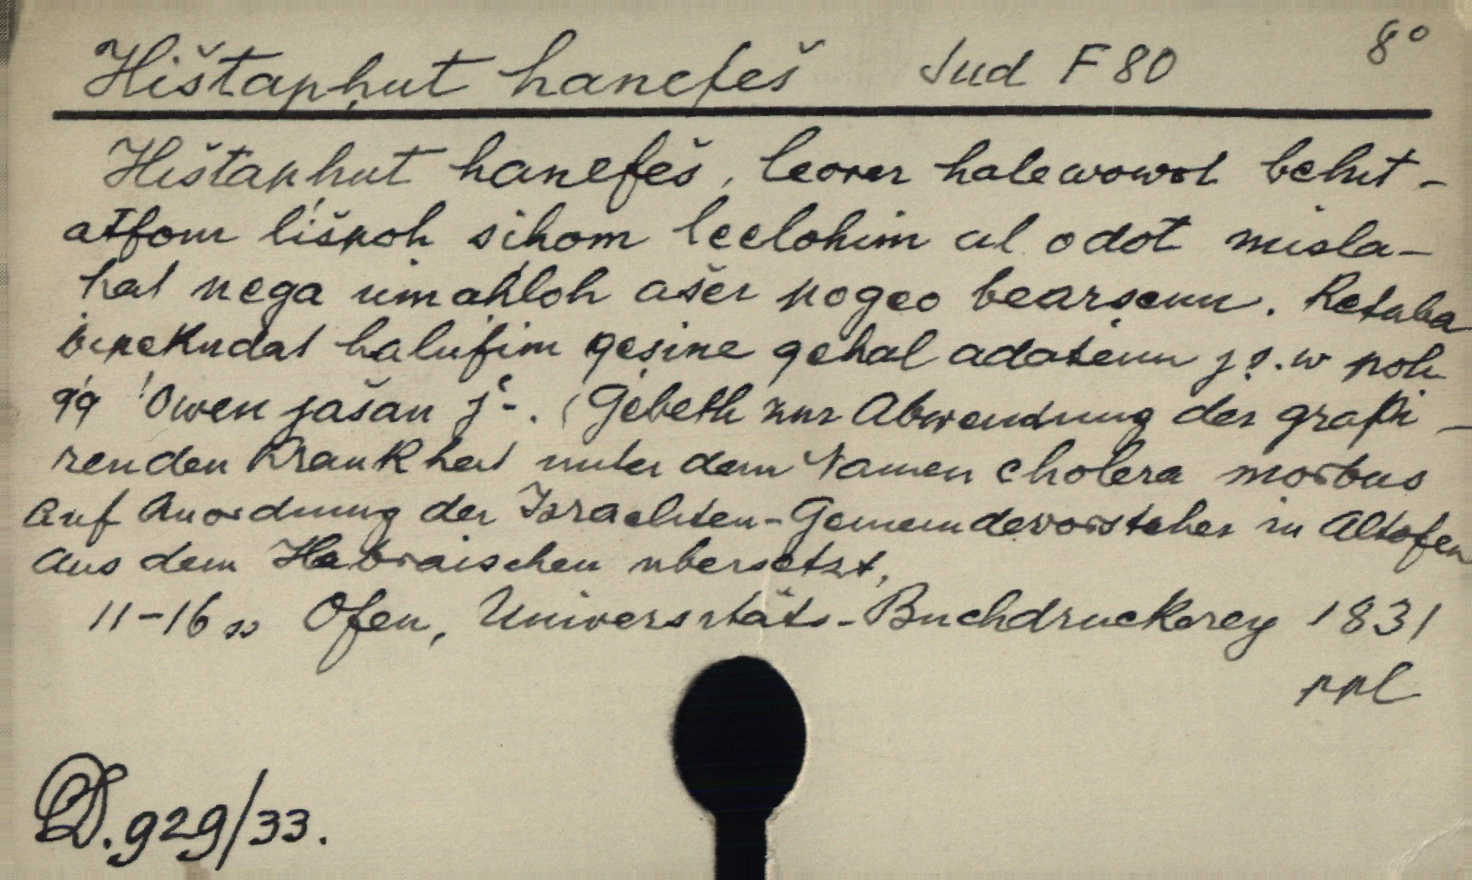 Hištapḥut hanefeš Jud F 80 8°
Hištapḥut hanefeš, leorer halewowot behit-
atfom lišpoh sihom leelohim al odot misla-
hat nega umahloh ašer pogeo bearsenu. Ketuba
bipekudat halufim qesine qehal adatenu j. s. w poh
qq Owen jašan j-. (Gebeth zur Abwendung der graßi-
renden Krankheit unter dem Namen cholera morbus
Auf Anordnung der Israeliten-Gemeindevorsteher in Altofen
Aus dem Hebraischen ubersetzt,
11-16 Ofen, Universitäts-Buchdruckerey 1831
ppl
D. 929/33.